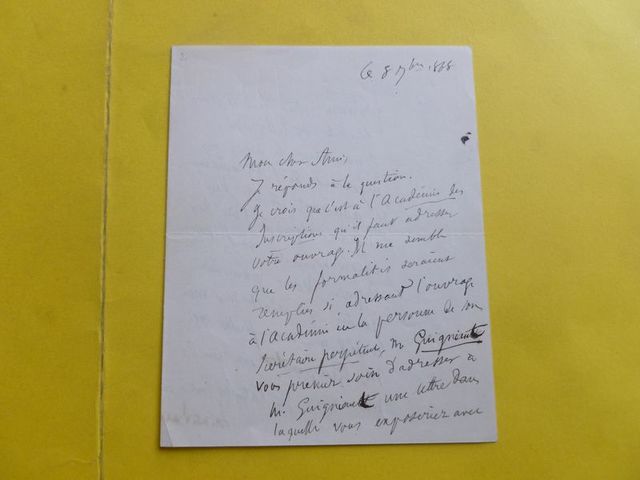 Ce 8 9bre 1868
Mon cher Ami,
Je réponds à la question.
Je crois que c'est à l'Académie des
Inscriptions qu'il faut adresser
votre ouvrage. Il me semble
que les formalités seraient
remplies si adressant l'ouvrage
à l'Académie en la personne de son
Secrétaire perpétuel, M. Guigniaut
vous preniez soin d'adresser à
M. Guigniaut une lettre dans
laquelle vous exposeriez avec